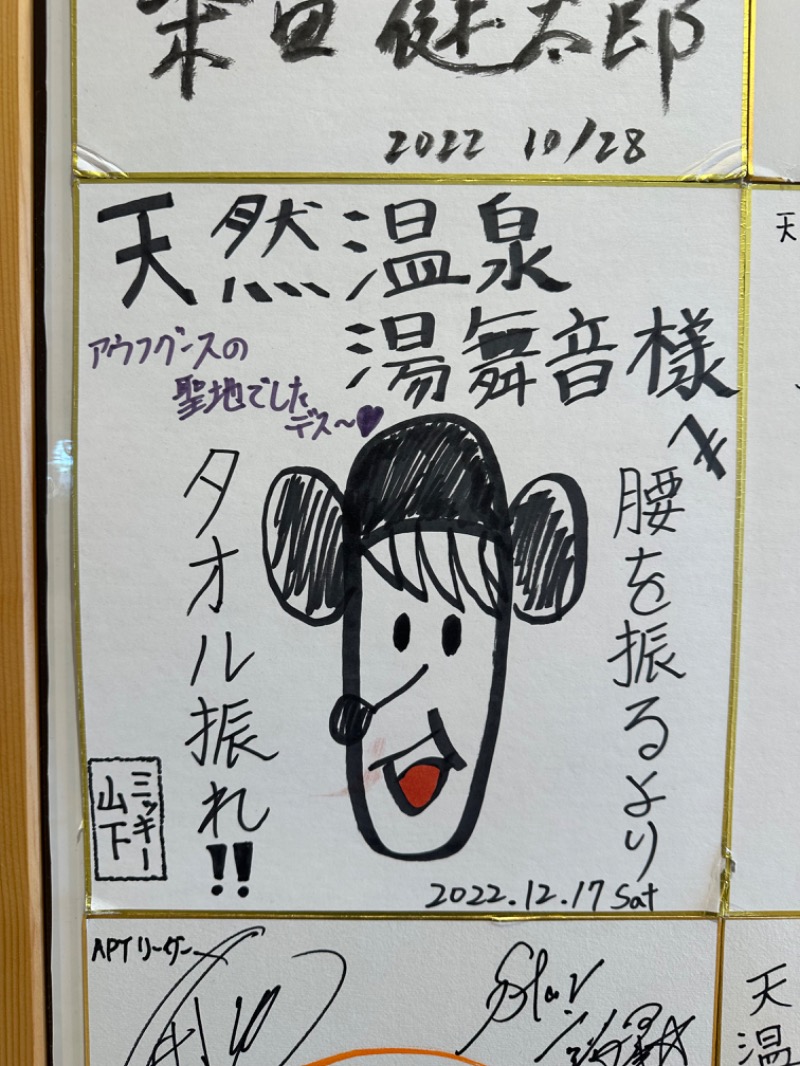 健太郎
2022 10/28
天然温泉
湯舞音様へ
アウフグースの
聖地でした
デス～♥
腰を振るより
タオル振れ!!
ミッキー
山下
2022.12.17 Sat
APTリーダー
天
天
温